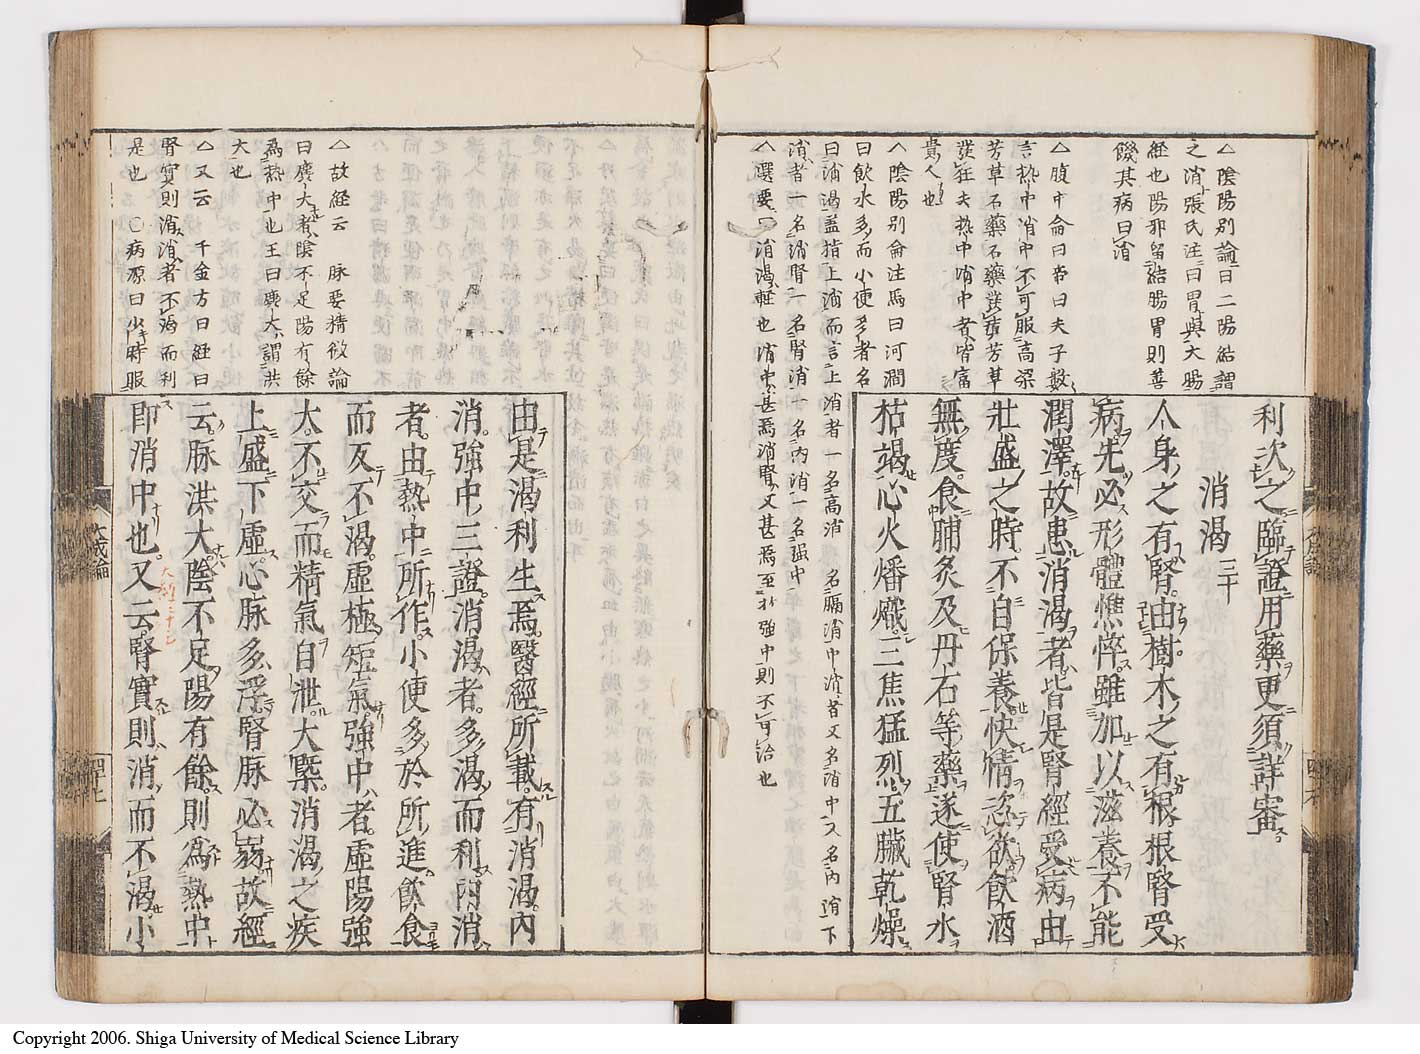 △陰陽別論曰二陽結謂
之消張氏注曰胃與大腸
経也陽邪留結腸胃則善
饑其病曰消
△腹中侖曰岩曰夫子数
言热中消中不可服高梁
芳草石藥石藥發瘨芳草
發狂夫热中消中者皆富
貴人也
△陰陽別侖注馬曰河澗
曰飲水多而小便多者名
曰消渴盖指上消而言上消者一名高消 名膈消中消者又名消中又名内消下
消者一名消腎一名腎消一名内消一名强中
△選要曰消渴軽也消中甚焉消腎又甚焉至於強中則不可治也
利次之臨證用藥更須詳審
消渴三十
人身之有腎由樹木之有根根腎受
病先必形體憔悴雖加以滋養不能
潤澤故患消渴者皆是腎經受病由
壯盛之時不自保養快情恣欲飲酒
無度食脯炙及丹石等藥遂使腎水
枯竭心火燔熾三焦猛烈五臟乾燥
由是渴利生焉醫經所載有消渴内
消強中三證消渴者多渴而利内消
者由熱中所作小便多於所進飲食
而反不渴虛極短氣強中者虛陽強
大不交而精氣自泄大槩消渴之疾
上盛下虛心脉多浮腎脉必弱故經
云脉洪大陰不足陽有餘則爲熱中
即消中也又云腎實則消而不渴小
△故経云 脉要精微論
曰麤大者陰不足陽有餘
爲热中也王曰麤大謂洪
大也
△又云 千金方曰経曰
腎實則消消者不渴而利
是也 〇病源曰少時服
大成論
四十七